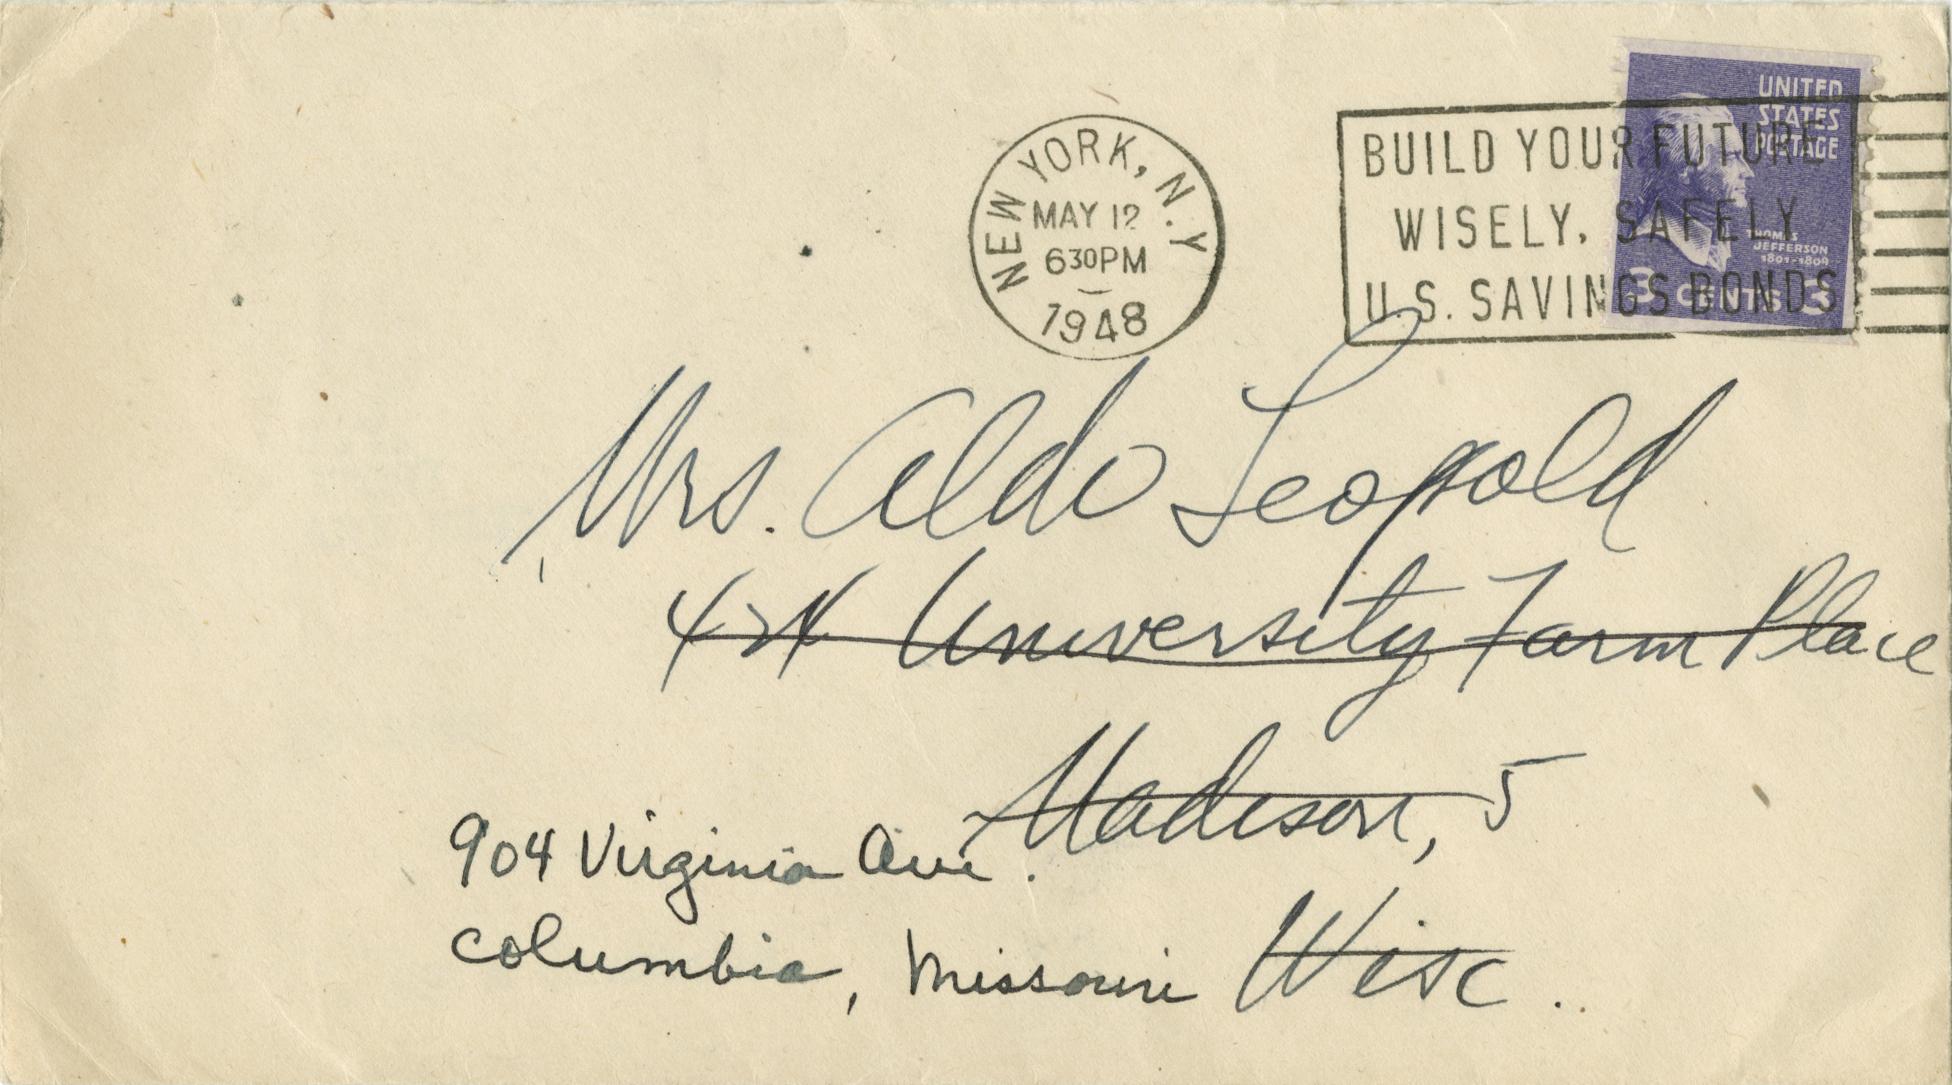 NEW YORK, N.Y
MAY 12
630PM
1948
BUILD YOUR FUTURE
WISELY, SAFELY
U.S. SAVINGS BONDS
UNITED
STATES
POSTAGE
THOMAS
JEFFERSON
1801-1809
3 CENTS 3
Mrs. Aldo Leopold
424 University Farm Place
Madison, 5
Wisc.
904 Virginia Ave.
Columbia, Missouri